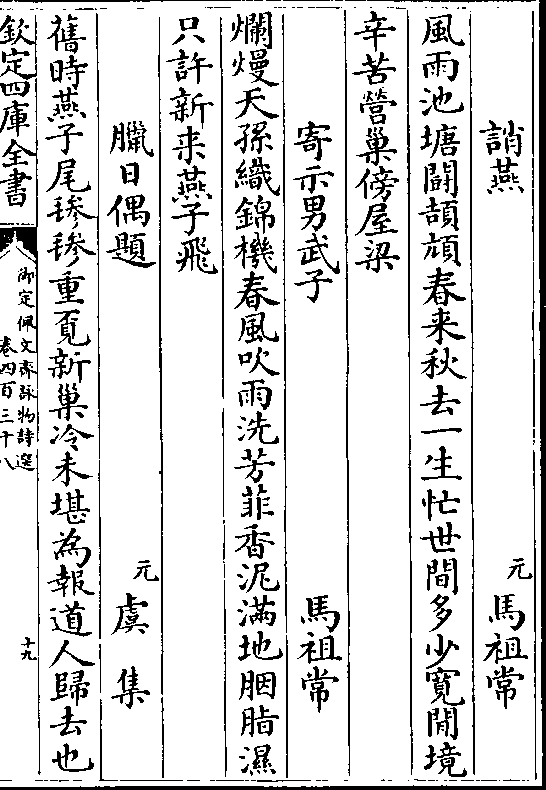 誚燕
元 馬祖常
風雨池塘鬭頡頏春来秋去一生忙世間多少寛閒境
辛苦營巢傍屋梁
寄示男武子
馬祖常
爛熳天孫織錦機春風吹雨洗芳菲香泥滿地胭脂濕
只許新来燕子飛
臘日偶題
元 虞集
舊時燕子尾毿毿重覓新巢冷未堪為報道人歸去也
欽定四庫全書
御定佩文齋詠物詩選
卷四百三十八
十九